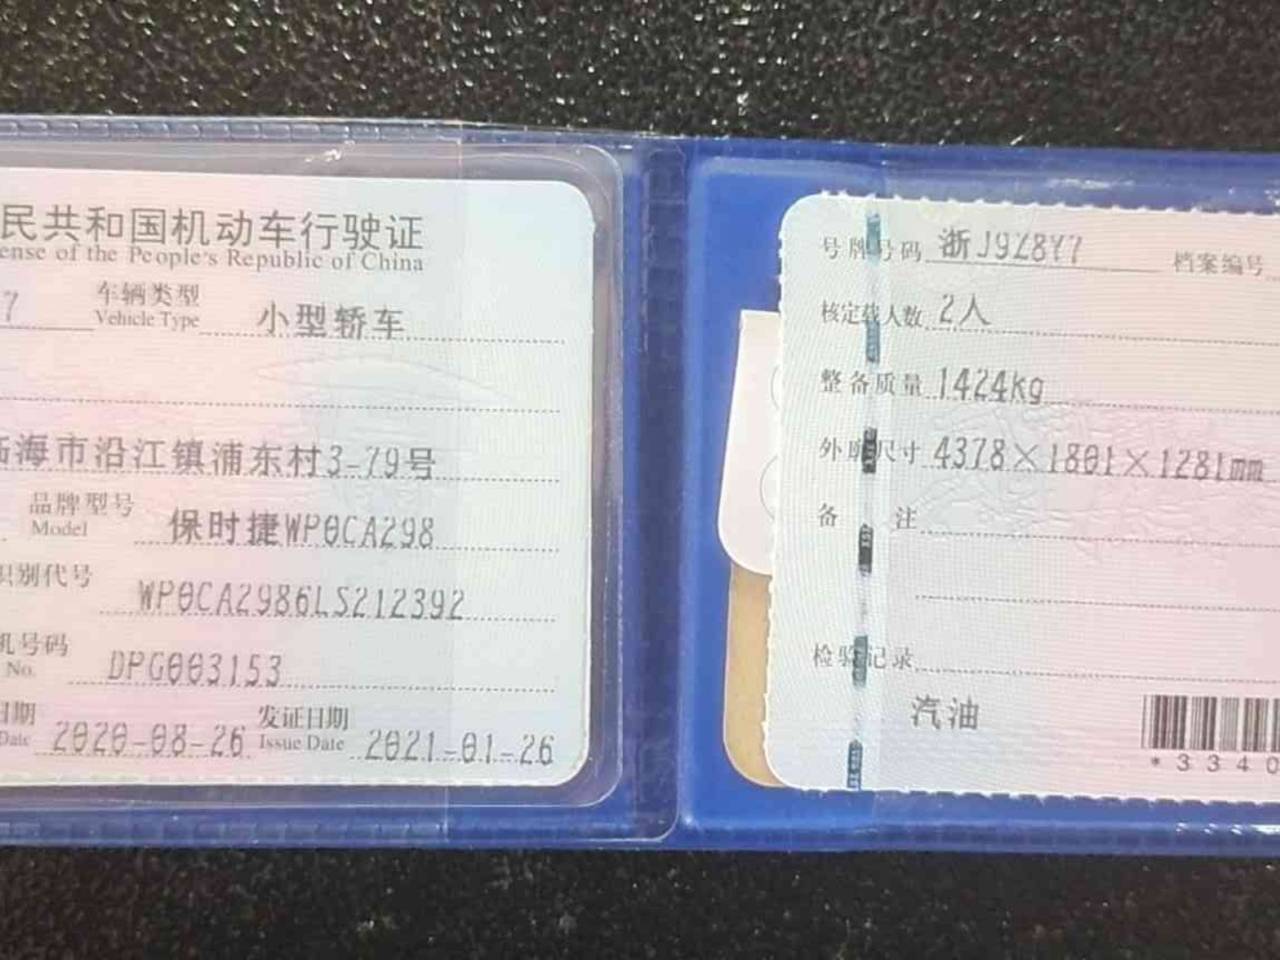 民共和国机动车行驶证
ense of the People's Republic of China
7 车辆类型 Vehicle Type 小型轿车
海市沿江镇浦东村3-79号
品牌型号 Model 保时捷WP0CA298
识别代号 WP0CA2986LS212392
机号码 No. DPG003153
日期 Date 2020-08-26 发证日期 Issue Date 2021-01-26
号牌号码 浙J9Z8Y7 档案编号
核定载人数 2人
整备质量 1424kg
外廓尺寸 4378×1801×1281mm
备注
检验记录
汽油
*3340